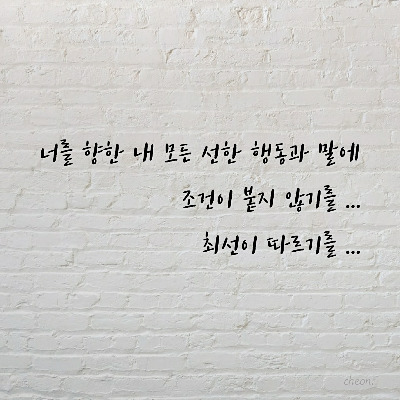 너를 향한 내 모든 선한 행동과 말에
조건이 붙지 않기를 ...
최선이 따르기를 ...
cheon.